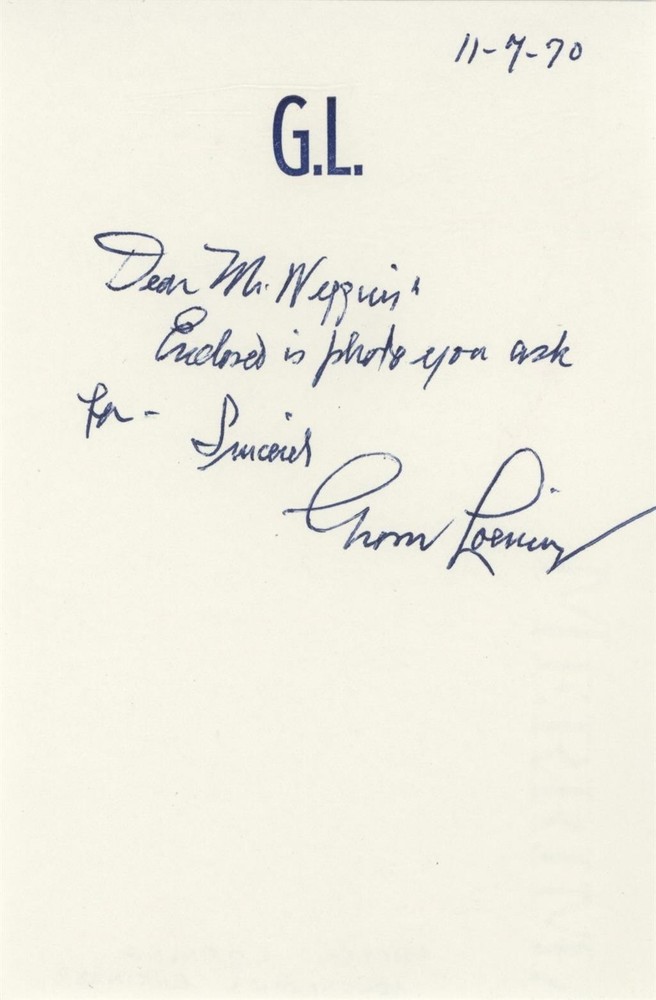 11-7-70
G.L.
Dear Mr. Wiggins:
Enclosed is photo you ask
for - Sincerely
Grover Loening